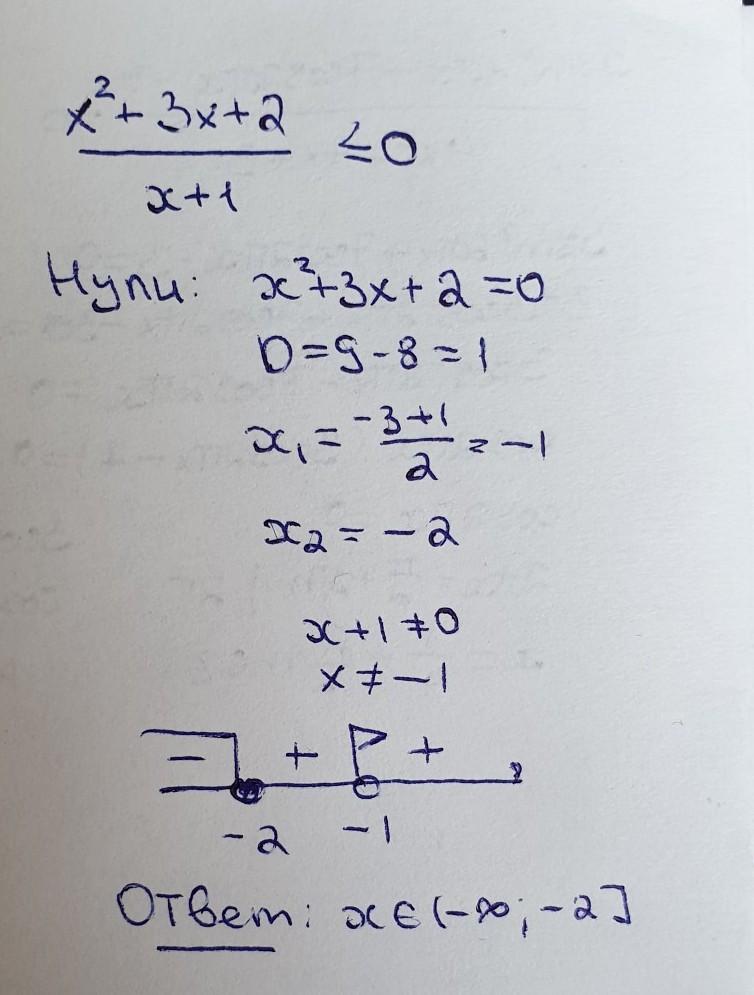 x²+3x+2
/ x+1 ≤0
Нули: x²+3x+2=0
D=9-8=1
x₁=(-3+1)/2=-1
x₂=-2
x+1≠0
x≠-1
- + +
-2 -1
Ответ: x∈(-∞;-2]